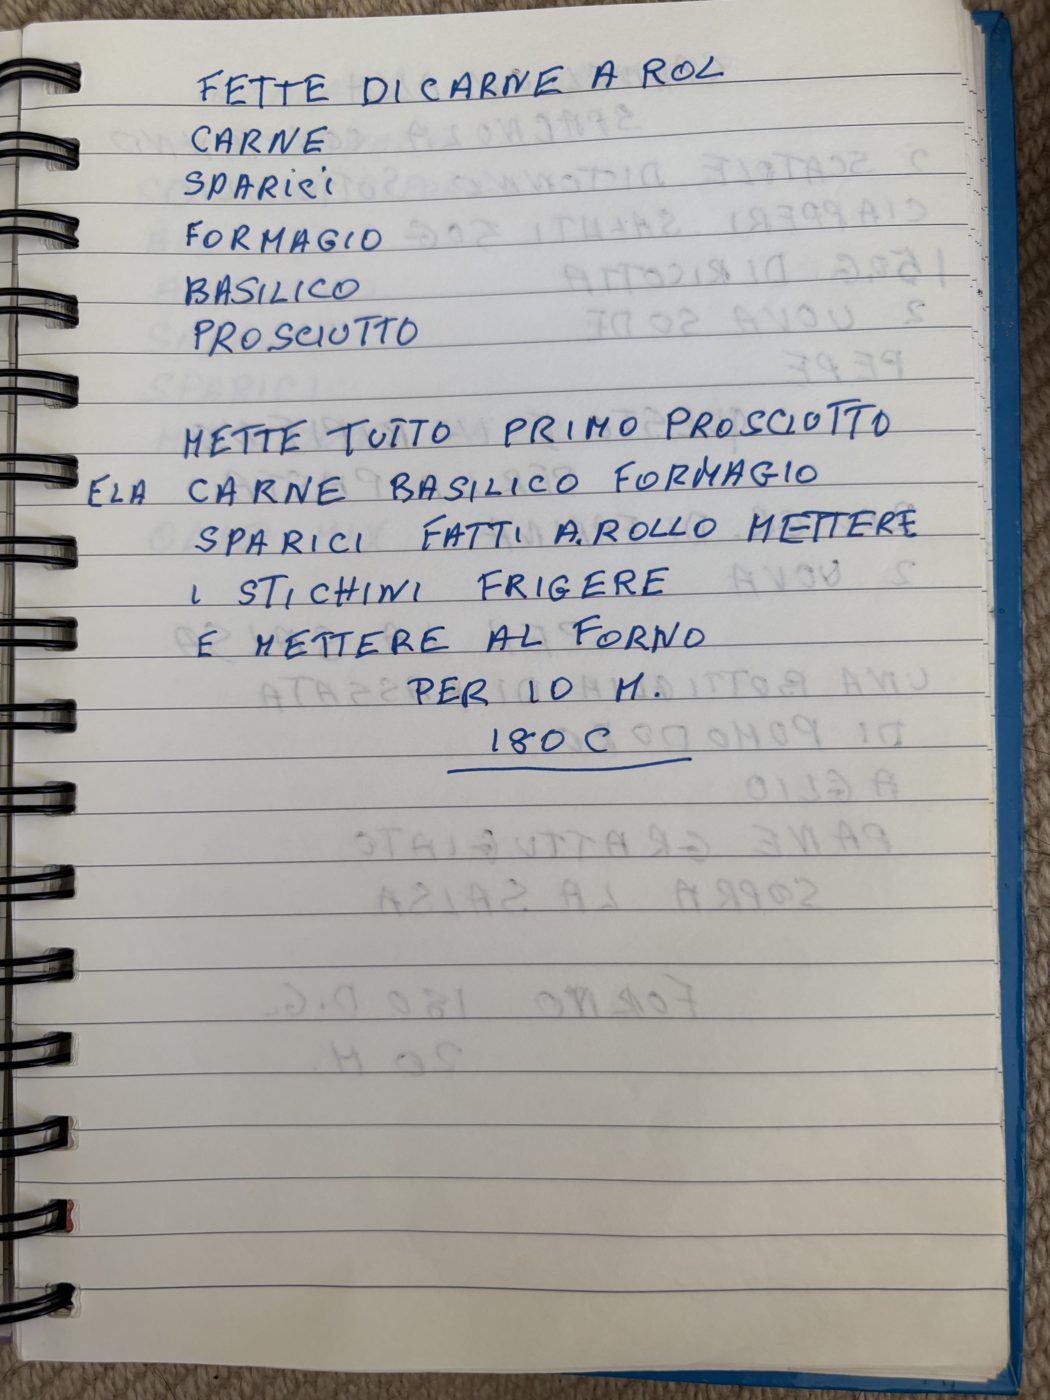 FETTE DI CARNE A ROL
CARNE
SPARICI
FORMAGIO
BASILICO
PROSCIUTTO
METTE TUTTO PRIMO PROSCIOTTO
E LA CARNE BASILICO FORMAGIO
SPARICI FATTI A.ROLLO METTERE
I STICHINI FRIGERE
E METTERE AL FORNO
PER 10 M.
180 C